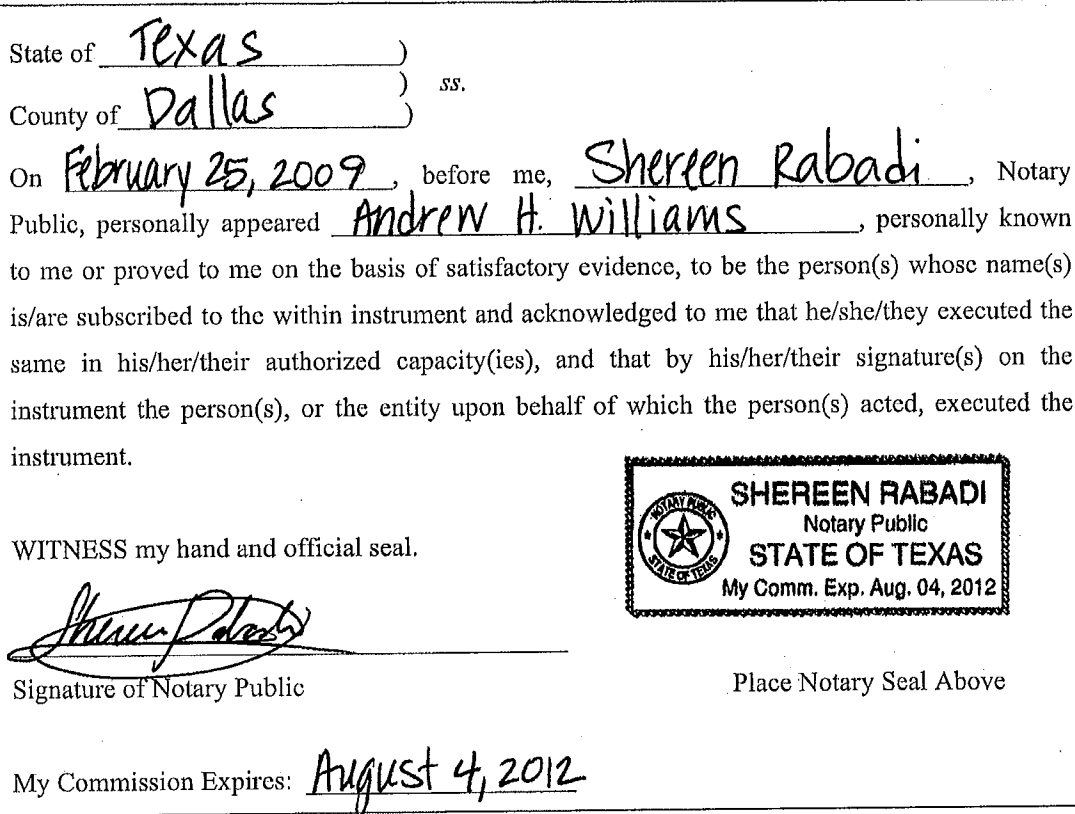 State of Texas )
) ss.
County of Dallas )
On February 25, 2009, before me, Shereen Rabadi, Notary
Public, personally appeared Andrew H. Williams, personally known
to me or proved to me on the basis of satisfactory evidence, to be the person(s) whose name(s)
is/are subscribed to the within instrument and acknowledged to me that he/she/they executed the
same in his/her/their authorized capacity(ies), and that by his/her/their signature(s) on the
instrument the person(s), or the entity upon behalf of which the person(s) acted, executed the
instrument.
SHEREEN RABADI
Notary Public
STATE OF TEXAS
My Comm. Exp. Aug. 04, 2012
NOTARY PUBLIC
STATE OF TEXAS
WITNESS my hand and official seal.
Shereen Rabadi
Signature of Notary Public
Place Notary Seal Above
My Commission Expires: August 4, 2012